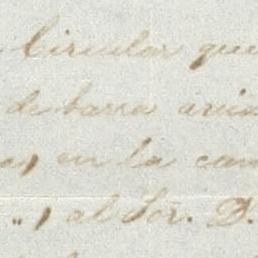 Circular que
de barra
en la
al Sor. D.